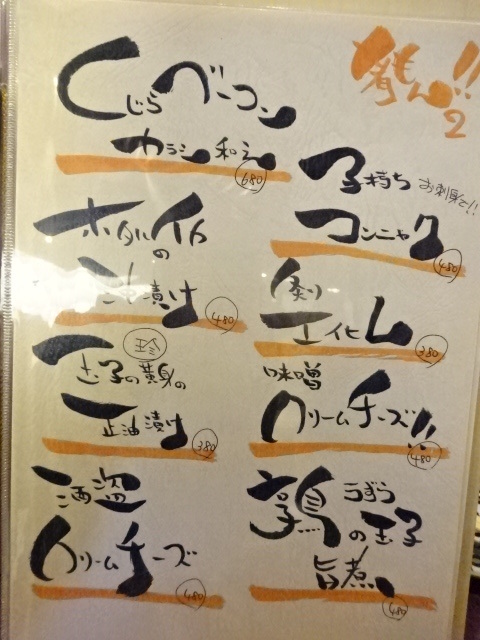 肴もん!!
2
くじらベーコン
カラシ和え
680
ホタルイカ
の
漬け
480
珍
玉子の黄身の
正油漬け
380
酒盗
クリームチーズ
480
子持ち お刺身で!!
コンニャク
480
炙り
エイヒレ
380
味噌
クリームチーズ!!
480
うずら
鶉の玉子
旨煮
480